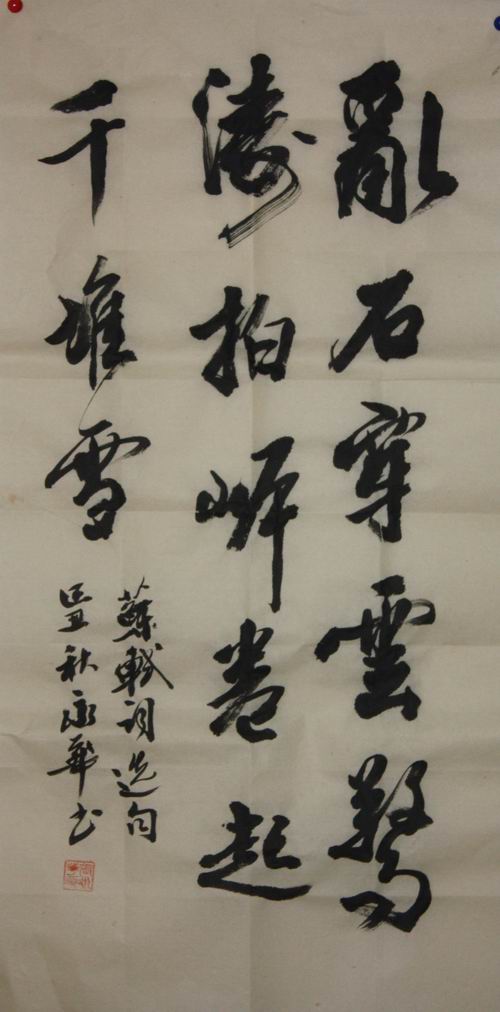 亂石穿雲驚
濤拍岸卷起
千堆雪
蘇軾詞選句
己丑秋永華书